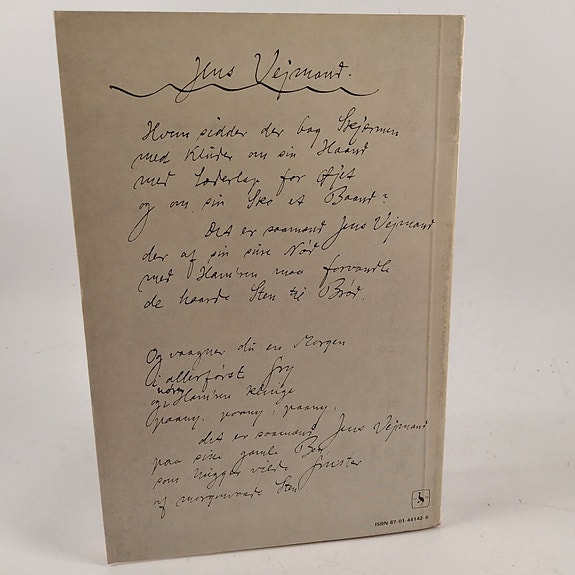 Jens Vejmand.
Hvem sidder der bag Skjærmen
med Klude om sin Haand
med Læderlap for Øjet
og om sin Sko et Baand?
Det er saamænd Jens Vejmand
der af sin sure Nød
med Ham'ren maa forvandle
de haarde Sten til Brød.
Og vaagner du en Morgen
i allerførst Gry
og hører Ham'ren klinge
paany, paany, paany,
det er saamænd Jens Vejmand
paa sine gamle Ben
som hugger vilde Gnister
af morgenvaade Sten
ISBN 87-01-44142-6